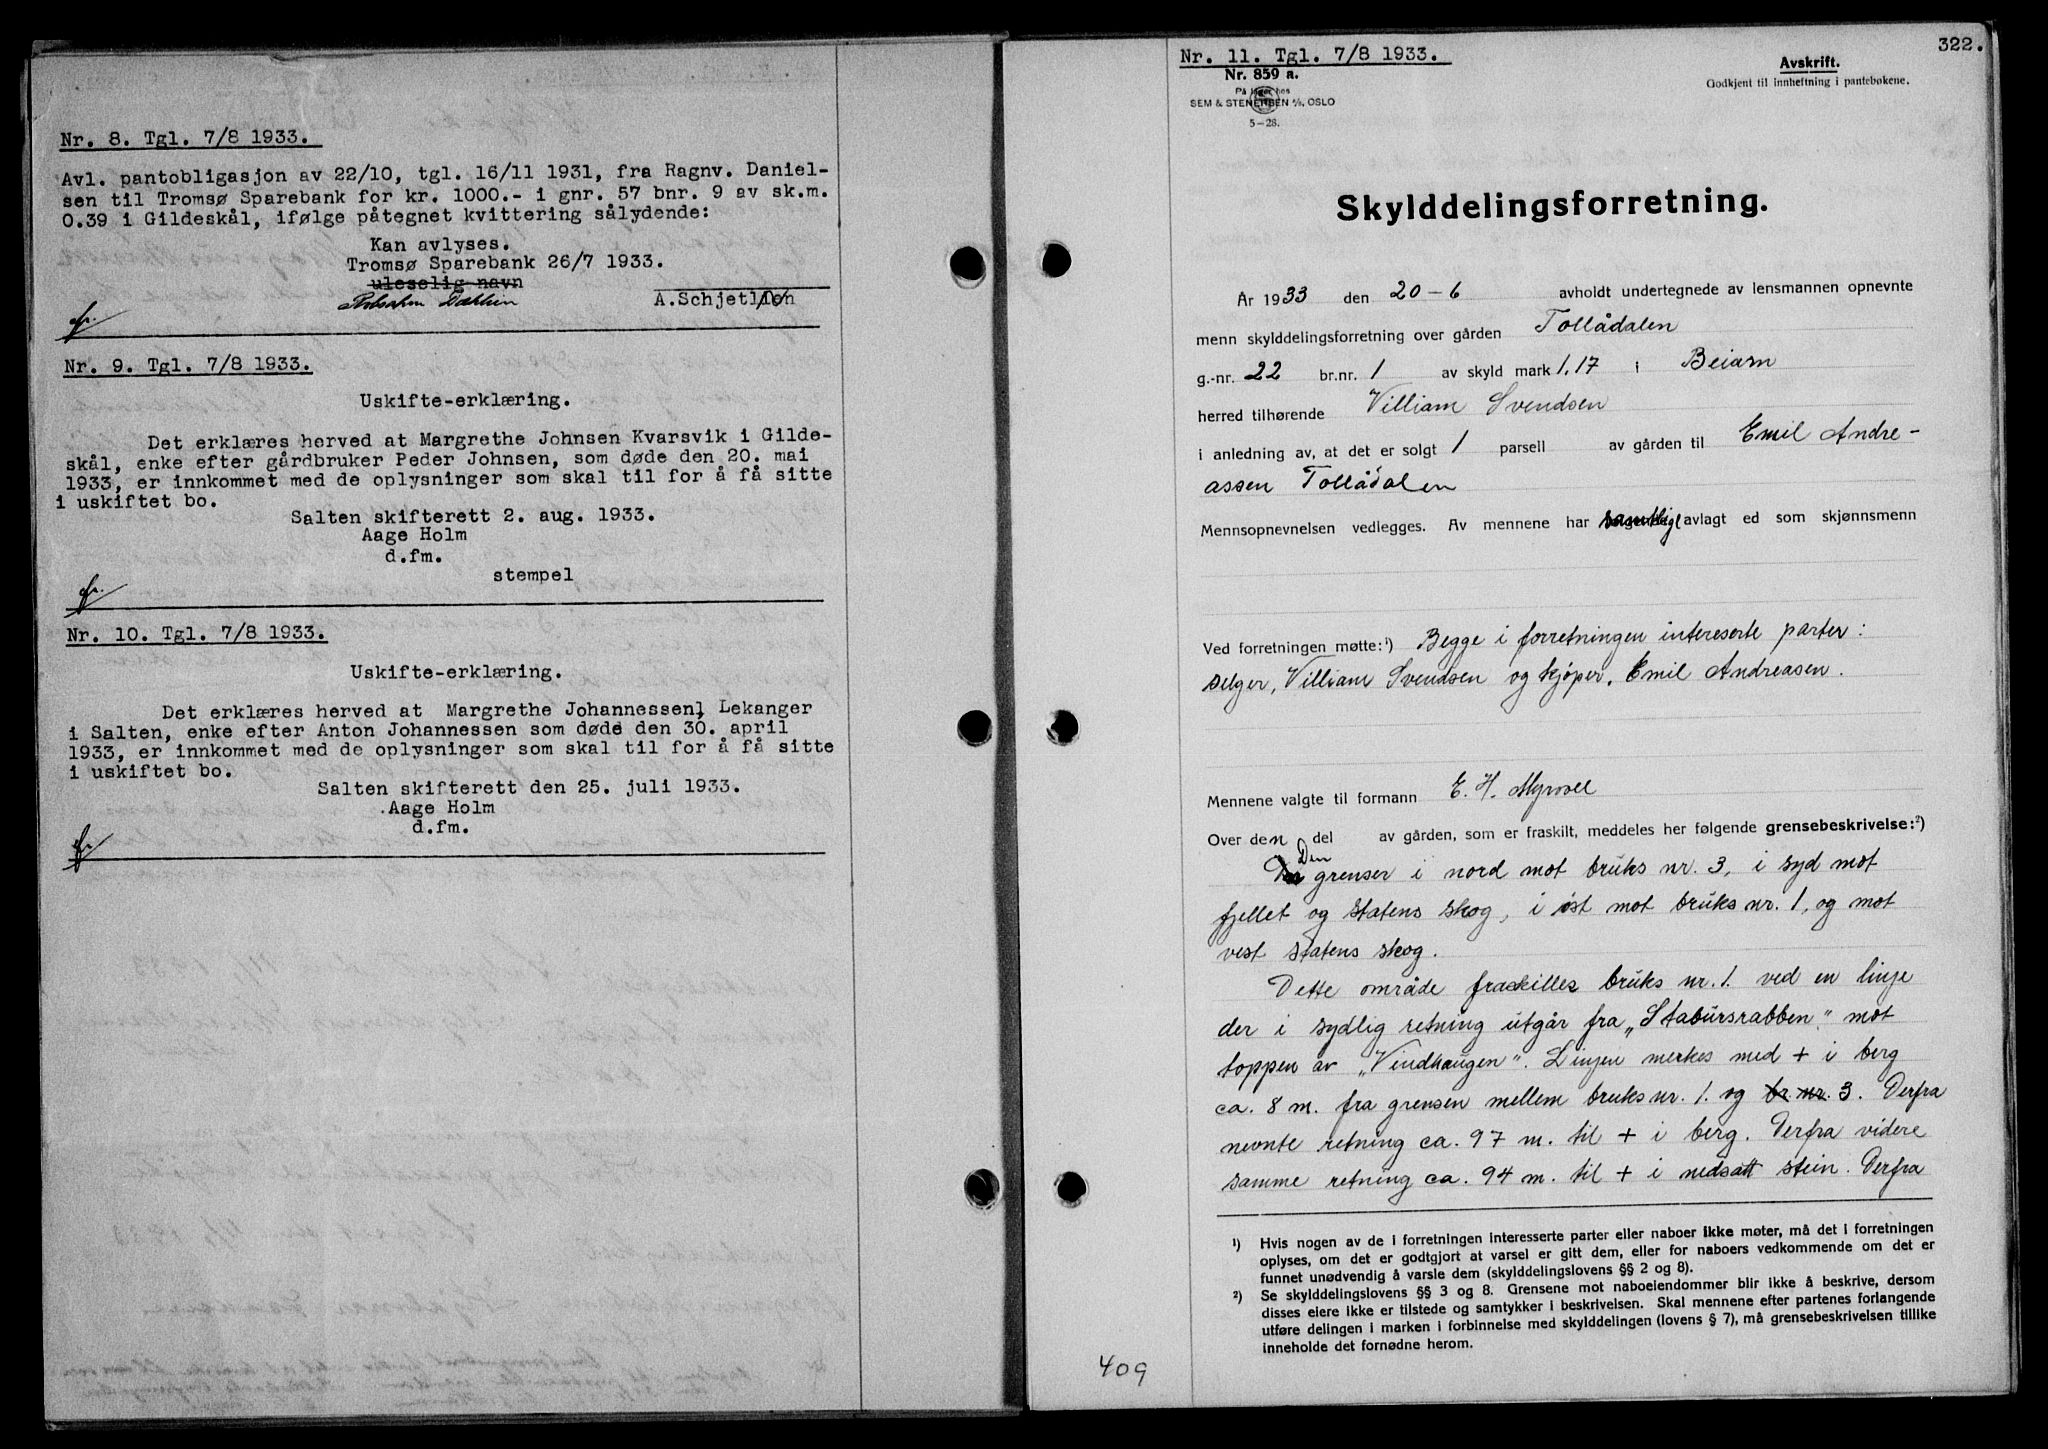 Nr. 8. Tgl. 7/8 1933.
Avl. pantobligasjon av 22/10, tgl. 16/11 1931, fra Ragnv. Daniel-
sen til Tromsø Sparebank for kr. 1000.- i gnr. 57 bnr. 9 av sk.m.
0.39 i Gildeskål, ifølge påtegnet kvittering sålydende:
Kan avlyses.
Tromsø Sparebank 26/7 1933.
uleselig navn
A.Schjetlien
Nr. 9. Tgl. 7/8 1933.
Uskifte-erklæring.
Det erklæres herved at Margrethe Johnsen Kvarsvik i Gilde-
skål, enke efter gårdbruker Peder Johnsen, som døde den 20. mai
1933, er innkommet med de oplysninger som skal til for å få sitte
i uskiftet bo.
Salten skifterett 2. aug. 1933.
Aage Holm
d.fm.
stempel
Nr. 10. Tgl. 7/8 1933.
Uskifte-erklæring.
Det erklæres herved at Margrethe Johannessen, Lekanger
i Salten, enke efter Anton Johannessen som døde den 30. april
1933, er innkommet med de oplysninger som skal til for å få sitte
i uskiftet bo.
Salten skifterett den 25. juli 1933.
Aage Holm
d.fm.
322.
Nr. 11. Tgl. 7/8 1933.
Nr. 859 a.
På lager hos
SEM & STENERSEN A/S, OSLO
5-28.
Avskrift.
Godkjent til innheftning i pantebøkene.
Skylddelingsforretning.
År 1933 den 20-6 avholdt undertegnede av lensmannen opnevnte
menn skylddelingsforretning over gården Tollådalen
g.-nr. 22 br.nr. 1 av skyld mark 1,17 i Beiarn
herred tilhørende Villiam Svendsen
i anledning av, at det er solgt 1 parsell av gården til Emil Andre-
assen Tollådalen
Mennsopnevnelsen vedlegges. Av mennene har samtlige avlagt ed som skjønnsmenn
Ved forretningen møtte:¹) Begge i forretningen intereserte parter:
selger, Villiam Svendsen og kjøper, Emil Andreasen.
Mennene valgte til formann E. H. Myrvoll
Over den del av gården, som er fraskilt, meddeles her følgende grensebeskrivelse:²)
Den grenser i nord mot bruks nr. 3, i syd mot
fjellet og statens skog, i øst mot bruks nr. 1, og mot
vest statens skog.
Dette område fraskilles bruks nr. 1. ved en linje
der i sydlig retning utgår fra „Stabursrabben" mot
toppen av „Vindhaugen". Linjen merkes med + i berg
ca. 8 m. fra grensen mellem bruks nr. 1. og br. nr. 3. Derfra
nevnte retning ca. 97 m. til + i berg. Derfra videre
samme retning ca. 94 m. til + i nedsatt stein. Derfra
¹) Hvis nogen av de i forretningen interesserte parter eller naboer ikke møter, må det i forretningen
oplyses, om det er godtgjort at varsel er gitt dem, eller for naboers vedkommende om det er
funnet unødvendig å varsle dem (skylddelingslovens §§ 2 og 8).
²) Se skylddelingslovens §§ 3 og 8. Grensene mot naboeiendommer blir ikke å beskrive, dersom
disses eiere ikke er tilstede og samtykker i beskrivelsen. Skal mennene efter partenes forlangende
utføre delingen i marken i forbinnelse med skylddelingen (lovens § 7), må grensebeskrivelsen tillike
inneholde det fornødne herom.
409